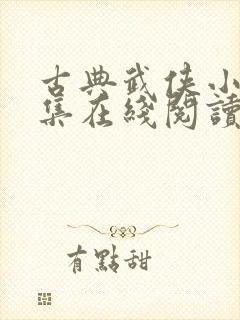 古典武侠小
集在綫閱讀
有點甜